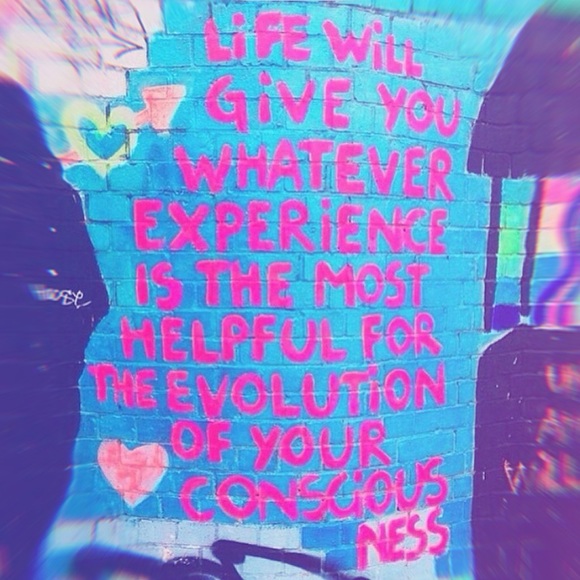 LiFE WiLL
GiVE YOU
WHATEVER
EXPERiENCE
IS THE MOST
HELPFUL FOR
THE EVOLUTiON
OF YOUR
CONSCiOUS
NESS